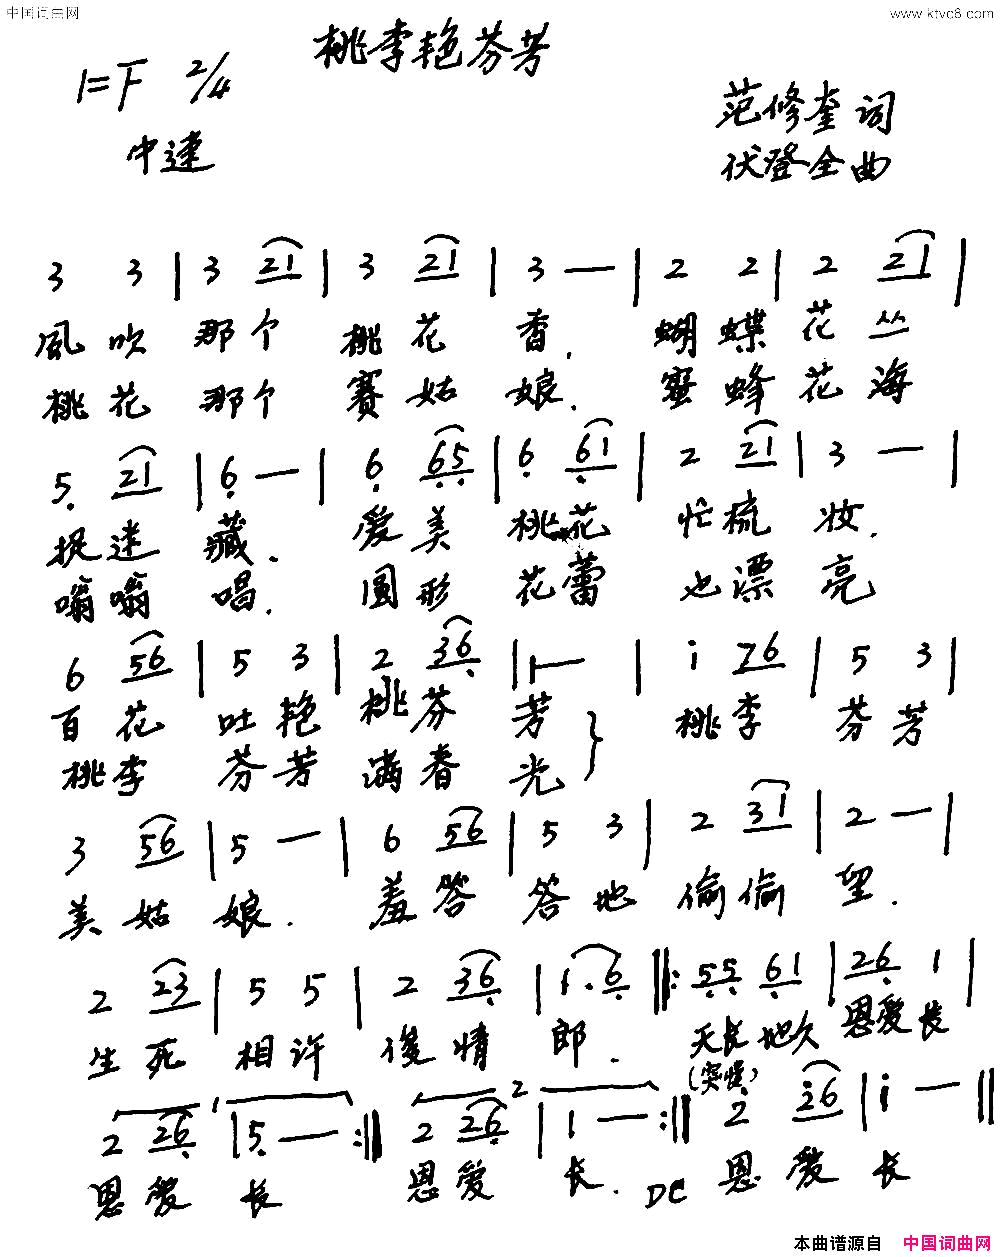 中国词曲网 www.ktvc8.com
桃李艳芬芳
1=F 2/4
范修奎 词
中速
伏登全 曲
3 3 | 3 21 | 3 21 | 3 — | 2 2 | 2 21 |
風吹 那个 桃花 香. 蝴蝶 花丛
桃花 那个 赛姑 娘. 蜜蜂 花海
5 21 | 6 — | 6 65 | 6 61 | 2 21 | 3 — |
捉迷 藏. 爱美 桃花 忙梳 妆.
嗡嗡 唱. 圆形 花蕾 也漂 亮
6 56 | 5 3 | 2 36 | 1 — | i 76 | 5 3 |
百花 吐艳 桃芬 芳 } 桃李 芬芳
桃李 芬芳 满春 光
3 56 | 5 — | 6 56 | 5 3 | 2 31 | 2 — |
美姑 娘. 羞答 答地 偷偷 望.
2 23 | 5 5 | 2 36 | 1. 6 ‖: 55 61 | 26 1 |
生死 相许 情郎. 天长地久 恩爱长
(突慢)
2 26 | 5 — :‖ 2 26 | 1 — :‖ 2 i6 | i — ‖
恩爱 长 恩爱 长. DC 恩爱 长
本曲谱源自 中国词曲网